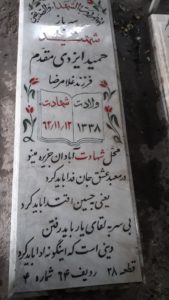 سرباز
شهید
حمید ایزدی مقدم
فرزند غلامرضا
ولادت شهادت
۱۳۳۸ ۶۲/۱۱/۱۲
محل شهادت آبادان جزیره مینو
در معبد عشق جان فدا باید کرد
یعنی چو حسین اقتدا باید کرد
بی سر به لقای یار باید رفتن
دینی است که اینگونه ادا باید کرد
قطعه ۲۸ ردیف ۶۴ شماره ۴